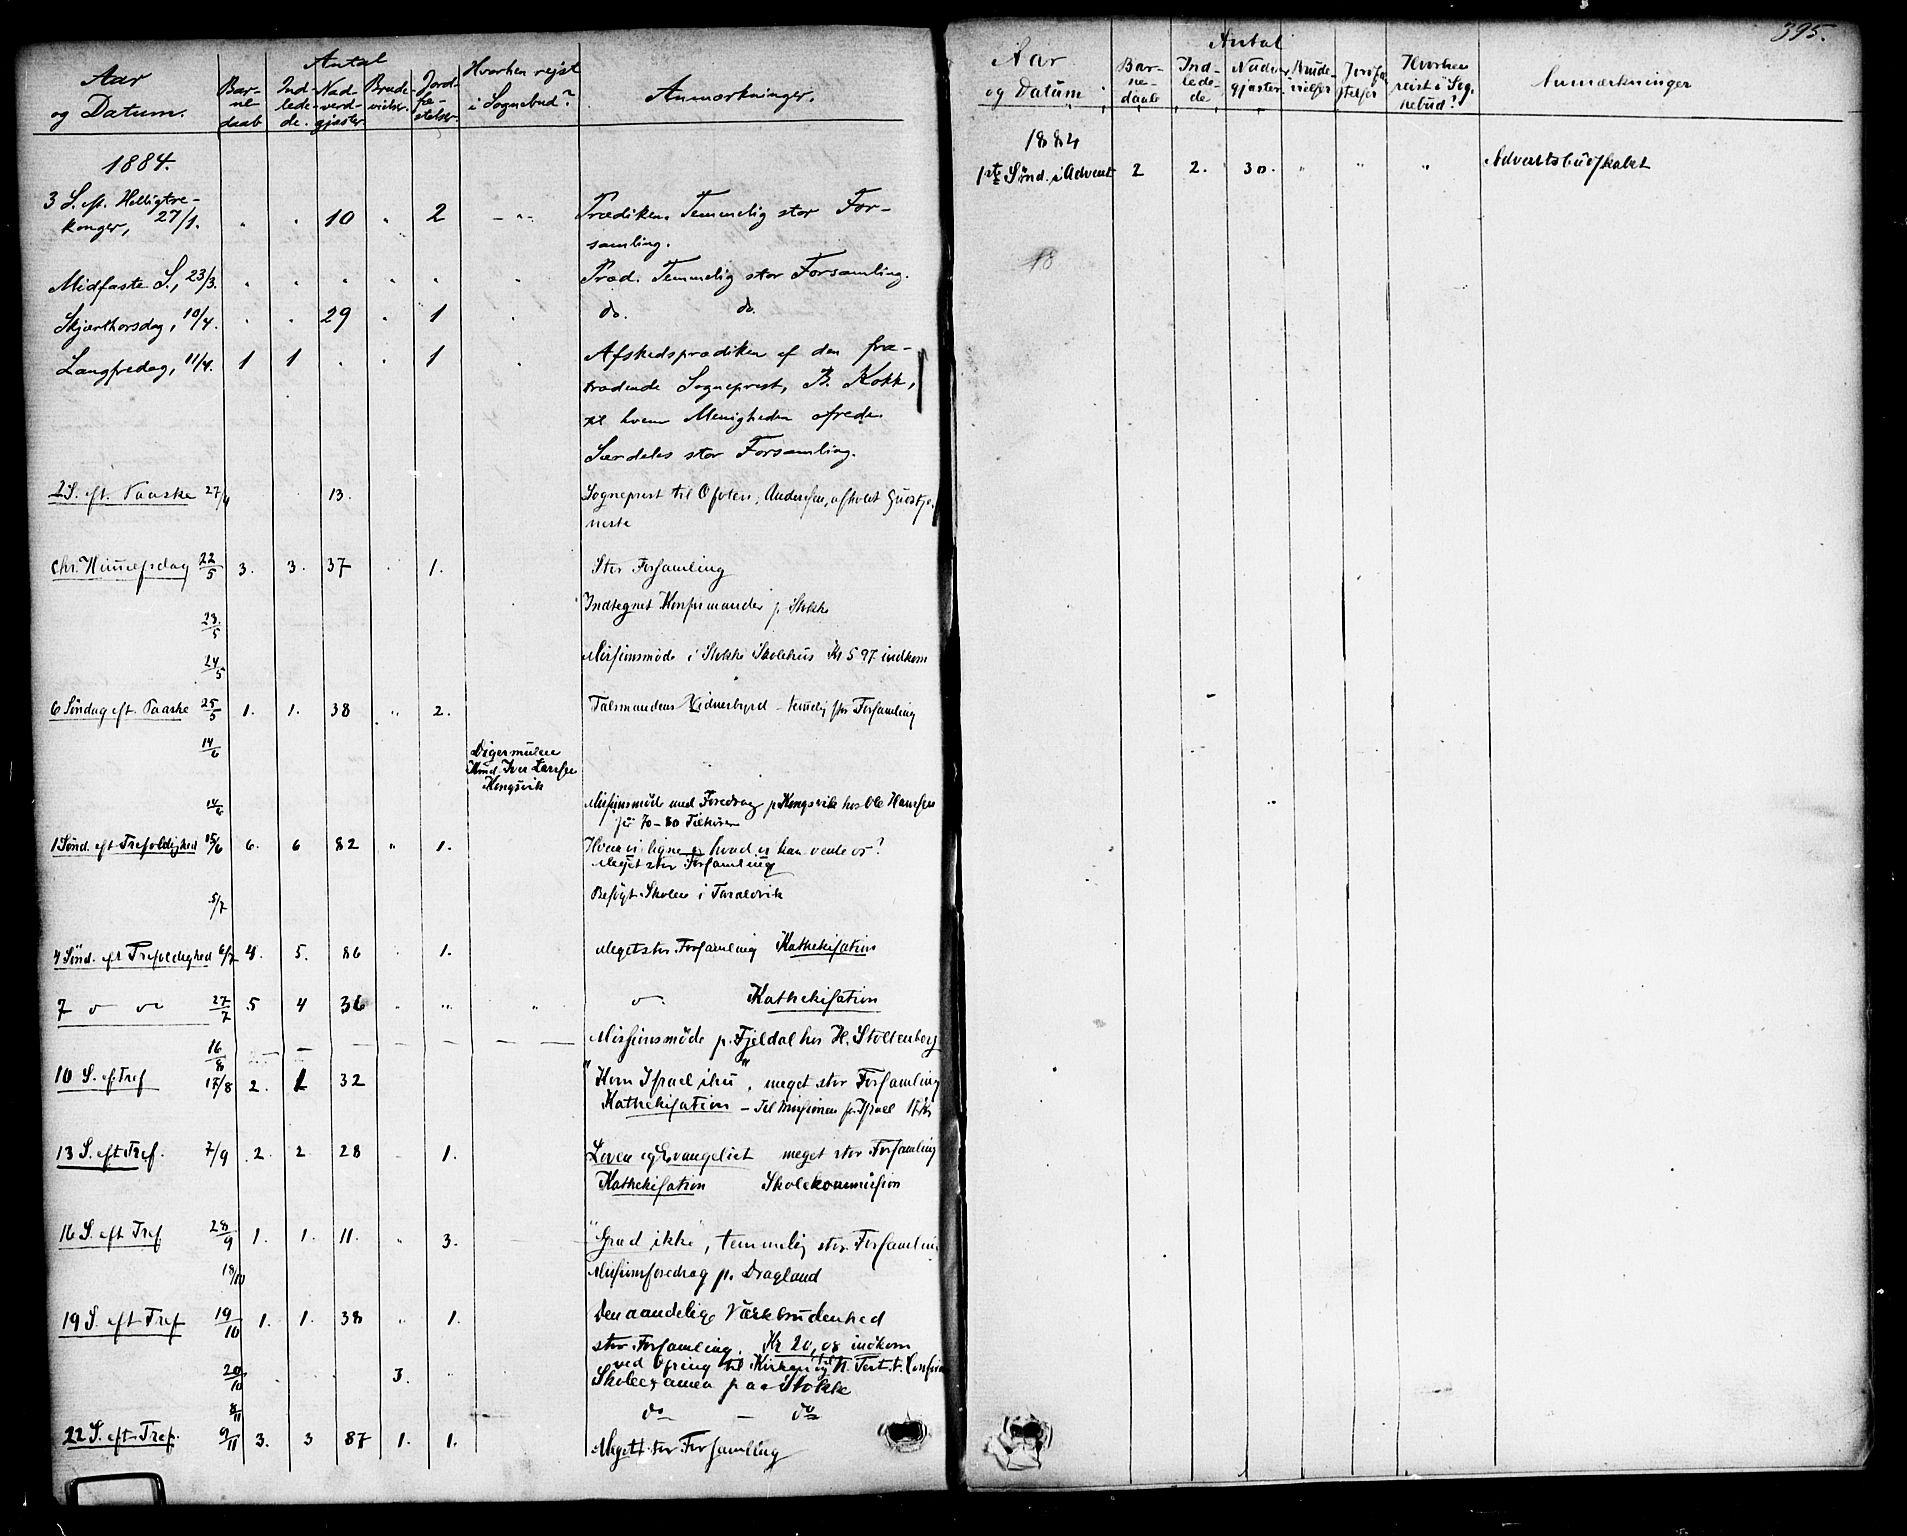 Aar og Datum. Antal Barnedaab Indledede. Nadverdgjæster Brudevielser. Jordfæstelser. Hvorhen rejst i Sognebud? Anmærkninger.
1884.
3 S. eft. Helligtre-
konger, 27/1. " " 10 " 2 - " - Prædiken. Temmelig stor For-
samling.
Midfaste S., 23/3. " " " " " " Præd. Temmelig stor Forsamling.
Skjærthorsdag, 10/4. " " 29 " 1 " do. do.
Langfredag, 11/4. 1 1 " " 1 " Afskedsprædiken af den fra-
trædende Sogneprest, B. Kokk,
til hvem Menigheden
Særdeles stor Forsamling.
2 S. eft. Paaske 27/4 13. Sogneprest til Ofoten, Andersen, afholdt Gudstje-
neste
Chr. Himmelfsdag 22/5 3. 3. 37 " 1. Stor Forsamling
23/5 Indtegnet Konfirmander p. Stokke
24/5 Missionsmöde i Stokke Skolehus Kr 5 97 indkom
6 Söndag eft. Paaske 25/5 1. 1. 38 " 2. Talsmandens Vidnesbyrd - temlig stor Forsamling
14/6 Digermulen
Iver Larssen
Kongsvik
14/6 Missionsmöde med Foredrag p. Kongsvik hos Ole Hanssen
for 70-80 Tilhörer
1 Sönd. eft Trefoldighed 15/6 6. 6 82 " 1. Hvem vi ligne og hvad vi kan vente os?
Meget stor Forsamling
5/7 Besögt Skolen i Taraldvik
4 Sönd. eft Trefoldighed 6/7 4. 5. 86 " 1. Meget stor Forsamling Kathekisation
7 27/7 5 4 36 " " " Kathekisation
16/8 - - - - - - Missionsmöde p. Fjeldal hos H. Stoltenberg
10 S. eft Tref 17/8 2. 1 32 "Kom Israel ihu", meget stor Forsamling
Kathekisation - Til Missionen for Israel
13 S. eft Tref. 7/9 2. 2 28 1. Loven og Evangeliet meget stor Forsamling
Kathekisation Skolekommission
16 S. eft Tref 28/9 1. 1. 11. " 3. "Græd ikke", temmelig stor Forsamling
18/10 Missionsforedrag p. Dragland
19 S. eft Tref 19/10 1. 1. 38 " 1. Den aandelige Værkbrudenhed
stor Forsamling. Kr 20,08 indkom
ved Ofring til Kirken og N. Test. t.
20/10 " " " 3. " Skoleexamen paa Stokke
8/11 do - do
22 S. eft Tref. 9/11 3. 3 87 1. 1. Meget stor Forsamling
395.
Aar og Datum Antal Barnedaab Indledede Nadvergjæster Brudevielser Jordfæstelser Hvorhen reist i Sognebud? Anmærkninger
1884
1ste Sönd. i Advent 2 2. 30. " " " Adventsbudskabet
18